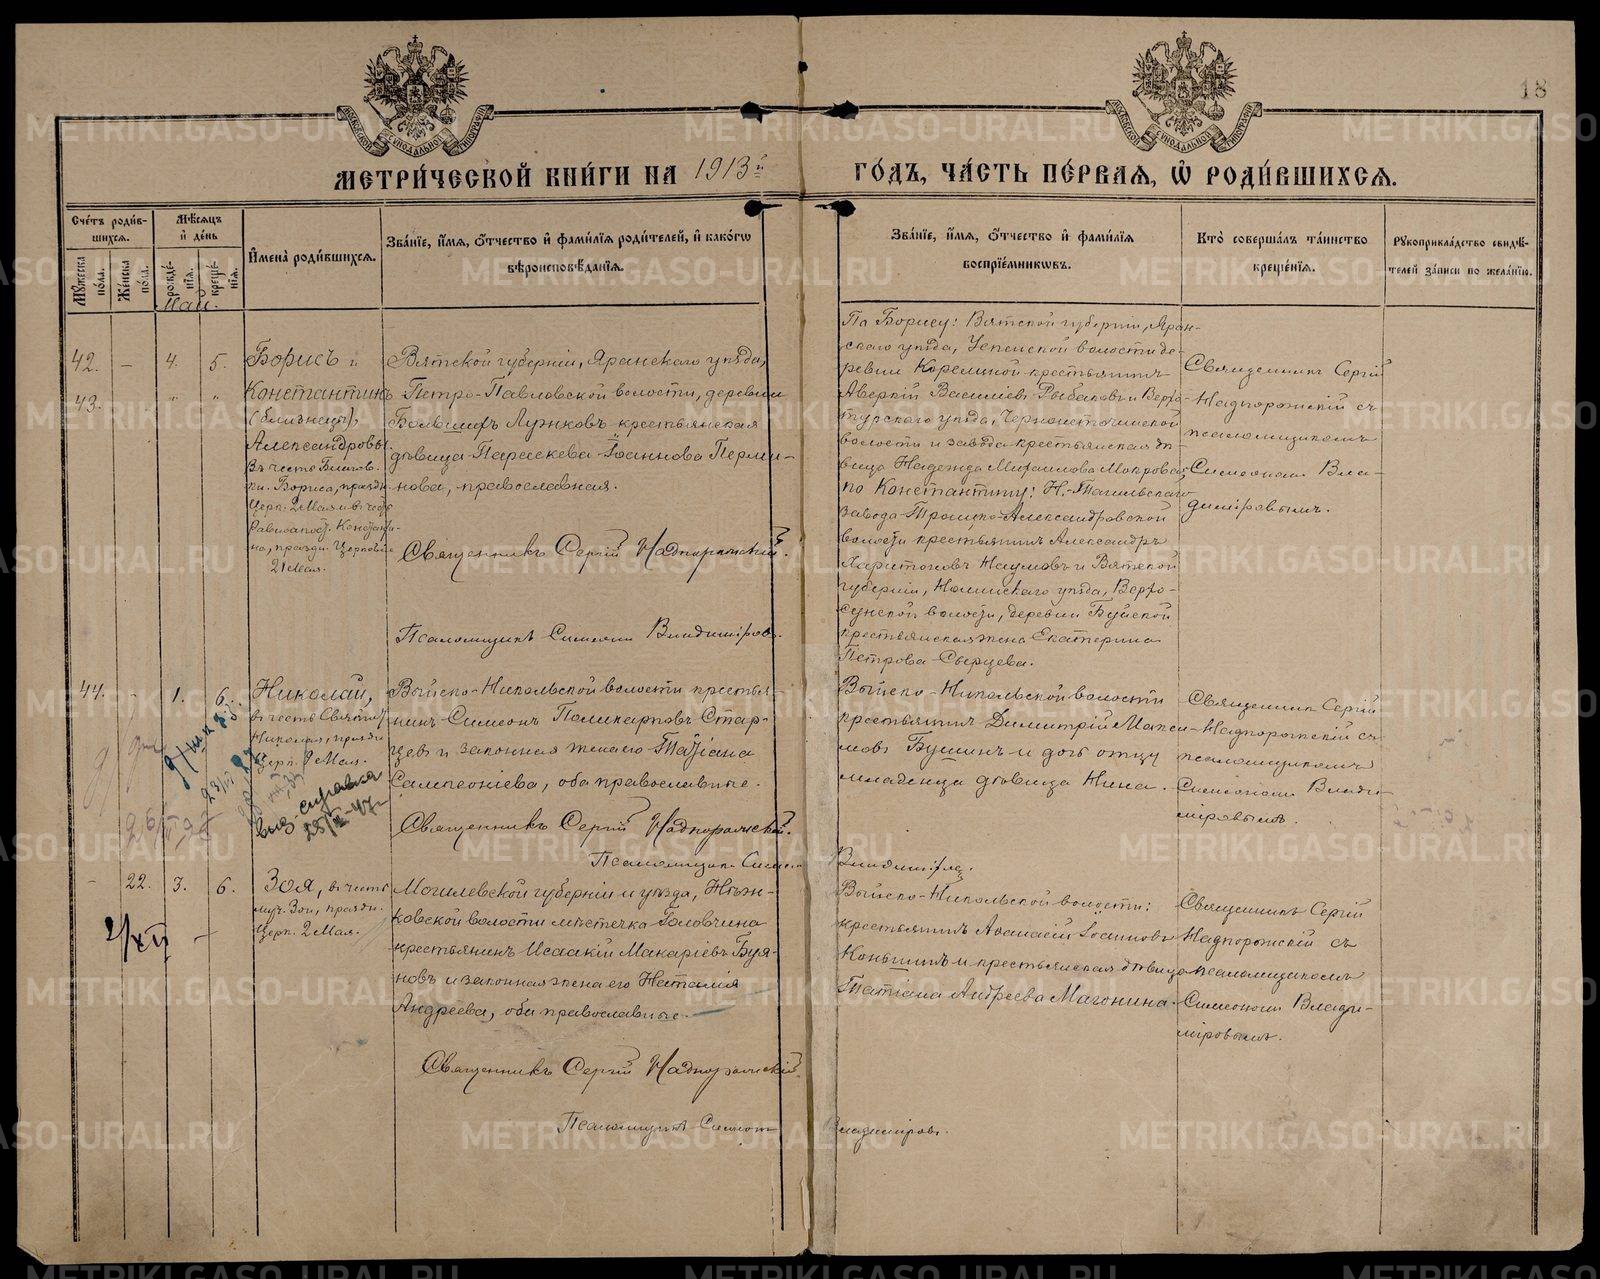 18
МЕТРИ́ЧЕСКОЙ КНИ́ГИ НА 1913й ГО́ДЪ, ЧА́СТЬ ПЕ́РВАЯ, Ѡ РОДИ́ВШИХСЯ.
Сче́тъ роди́вшихся.
Мѣ́сяцъ и де́нь
Му́жеска по́ла.
Же́нска по́ла.
рожде́нія.
креще́нія.
И҆мена̀ роди́вшихся.
Зва́нїе, и҆́мя, ѻ҆́тчество и҆ фами́лїя роди́телей, и҆ како́гѡ
вѣроисповѣ́данїя.
Зва́нїе, и҆́мя, ѻ҆́тчество и҆ фами́лїя
воспрїе́мникѡвъ.
Кто̀ соверша́лъ та́инство
креще́нїя.
Рꙋкоприкла́дство свидѣ́-
телей за́писи по жела́нїю.
Май.
42. - 4. 5.
43. - " "
Борисъ и
Константинъ
(близнецы)
Александровы
Въ честь Благов.
кн. Бориса, праздн.
Церк. 2 Мая и въ честь
Равноапост. Константи-
на, праздн. Церковію
21 Мая.
Вятской губерніи, Яранскаго уѣзда,
Петро-Павловской волости, деревни
Большихъ Лунковъ крестьянская
дѣвица Параскева Іоаннова Перми-
нова, православная.
Священникъ Сергій Надпорожскій.
Псаломщикъ Симеонъ Владиміровъ.
По Борису: Вятской губерніи, Яран-
скаго уѣзда, Успенской волости де-
ревни Корелиной крестьянинъ
Аверкій Василіевъ Рыбаковъ и Верхо-
турскаго уѣзда, Черноисточинской
волости и завода крестьянская дѣ-
вица Надежда Михаилова Макровая
по Константину: Н.-Тагильскаго
завода Троицко-Александровской
волости крестьянинъ Александръ
Харитоновъ Наумовъ и Вятской
губерніи, Нолинскаго уѣзда, Верхо-
сунской волости, деревни Буйской
крестьянская жена Екатерина
Петрова Сырцева.
Священникъ Сергій
Надпорожскій съ
псаломщикомъ
Симеономъ Вла-
диміровымъ.
44. - 1. 6.
Николай,
въ честь Святит.
Николая, праздн.
Церк. 9 Мая.
Выйско-Никольской волости крестья-
нинъ Симеонъ Поликарповъ Стар-
цевъ и законная жена его Татіана
Сампсоніева, оба православные.
Священникъ Сергій Надпорожскій.
Псаломщикъ Симеонъ Владиміровъ.
Выйско-Никольской волости
крестьянинъ Димитрій Макси-
мовъ Бушинъ и дочь отцу
младенца дѣвица Нина.
Священникъ Сергій
Надпорожскій съ
псаломщикомъ
Симеономъ Влади-
міровымъ.
выд. справка
- 22. 3. 6.
2/XII
Зоя, въ честь
муч. Зои, праздн.
Церк. 2 Мая.
Могилевской губерніи и уѣзда,
ковской волости мѣстечка Головчина
крестьянинъ Исаакій Макаріевъ Буя-
новъ и законная жена его Наталія
Андреева, оба православные.
Священникъ Сергій Надпорожскій.
Псаломщикъ Симеонъ Владиміровъ.
Выйско-Никольской волости:
крестьянинъ Аѳанасій Іоанновъ
Коньшинъ и крестьянская дѣвица
Татіана Андреева Магонина.
Священникъ Сергій
Надпорожскій съ
псаломщикомъ
Симеономъ Влади-
міровымъ.
METRIKI.GASO-URAL.RU